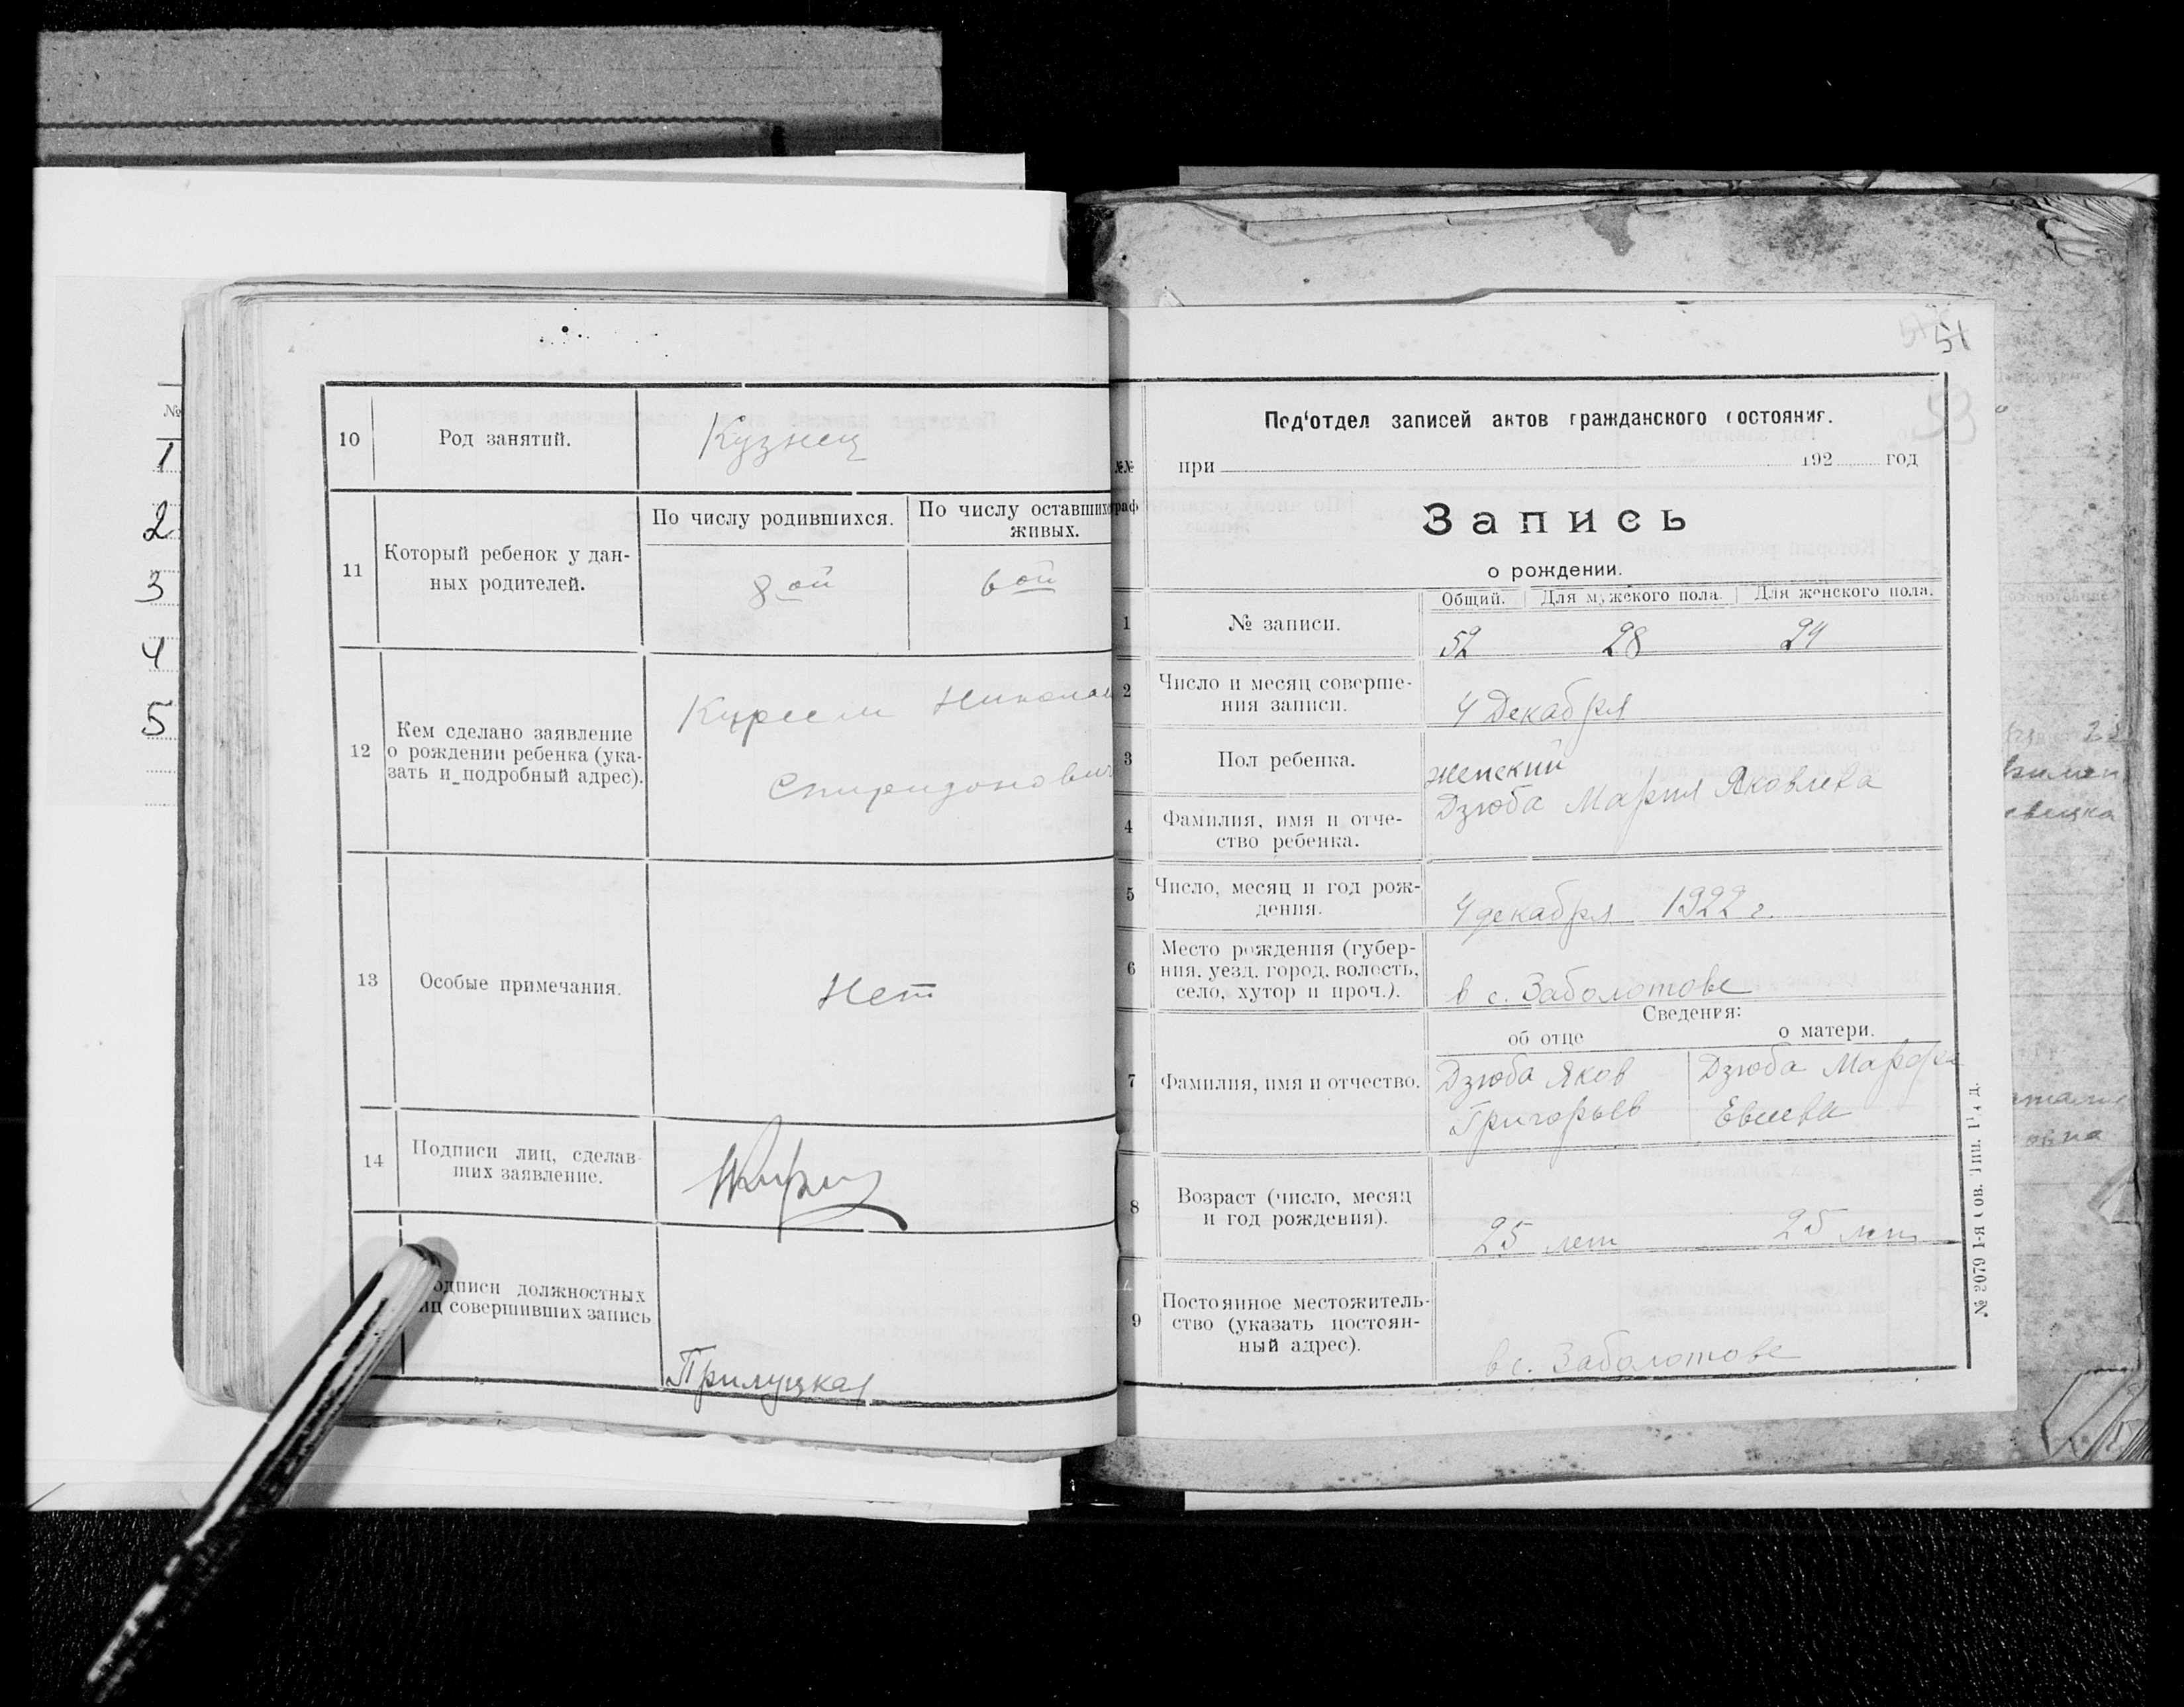 №
1
2
3
4
5
10
Род занятий.
Кузнец
11
Который ребенок у дан-
ных родителей.
По числу родившихся.
По числу оставшихся
живых.
8ой
6ой
12
Кем сделано заявление
о рождении ребенка (ука-
зать и подробный адрес).
Николай
Спиридонович
13
Особые примечания.
Нет
14
Подписи лиц, сделав-
ших заявление.
одписи должностных
иц совершивших запись
Прилуцкая
51
Под'отдел записей актов гражданского состояния.
№№
при 192 год
граф
Запись
о рождении.
Общий. Для мужского пола. Для женского пола.
1
№ записи.
52 28 24
2
Число и месяц соверше-
ния записи.
4 Декабря
3
Пол ребенка.
женский
4
Фамилия, имя и отче-
ство ребенка.
Дзюба Мария Яковлева
5
Число, месяц и год рож-
дения.
4 декабря 1922 г.
6
Место рождения (губер-
ния, уезд, город, волость,
село, хутор и проч.).
в с. Заболотове
Сведения:
об отце
о матери.
7
Фамилия, имя и отчество.
Дзюба Яков
Григорьев
Дзюба Марфа
Евсеева
8
Возраст (число, месяц
и год рождения).
25 лет
25 лет
9
Постоянное местожитель-
ство (указать постоян-
ный адрес).
в с. Заболотове
№ 2079 1-я Сов. Тип.